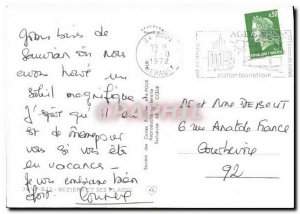 Gros bisous de
Sauvian où nous
avons trouvé un
soleil magnifique
J'espère qu'il en
est de même pour
vous si vous êtes
en vacances -
Je vous embrasse bien
fort.
BEZIERS ET SES PLAGES
19 H
1972
HERAULT
AGDE
station touristique
0,30
Mr et Mme DEBOUT
6 rue Anatole France
Courbevoie
92